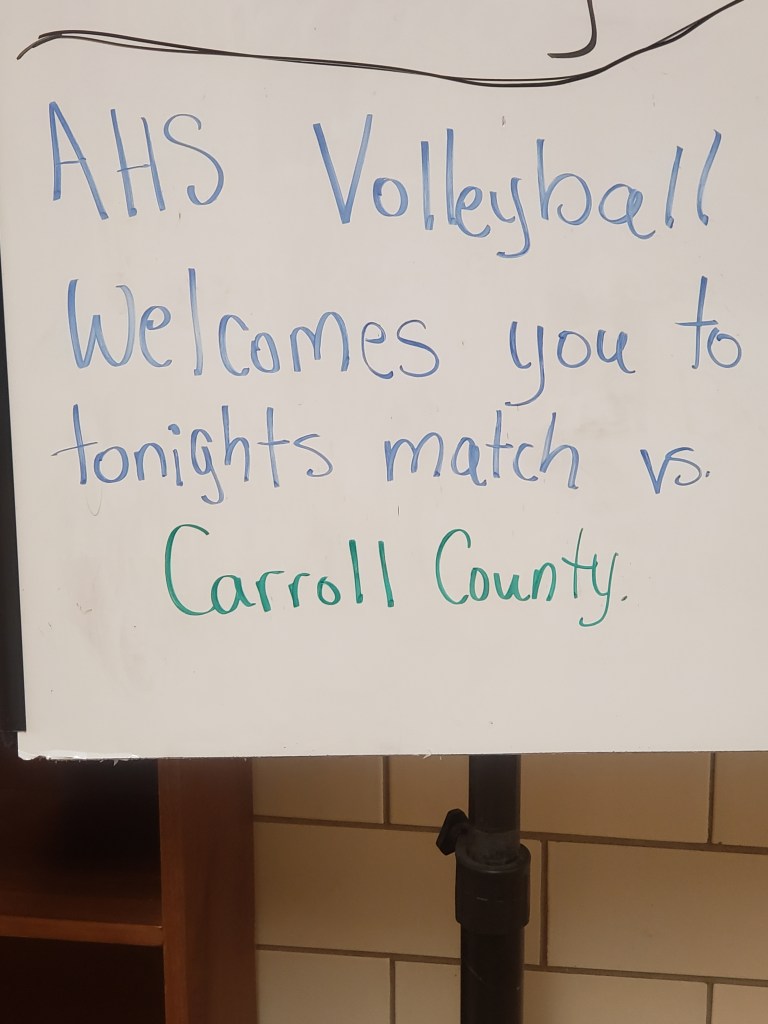 AHS Volleyball
Welcomes you to
tonights match vs.
Carroll County.